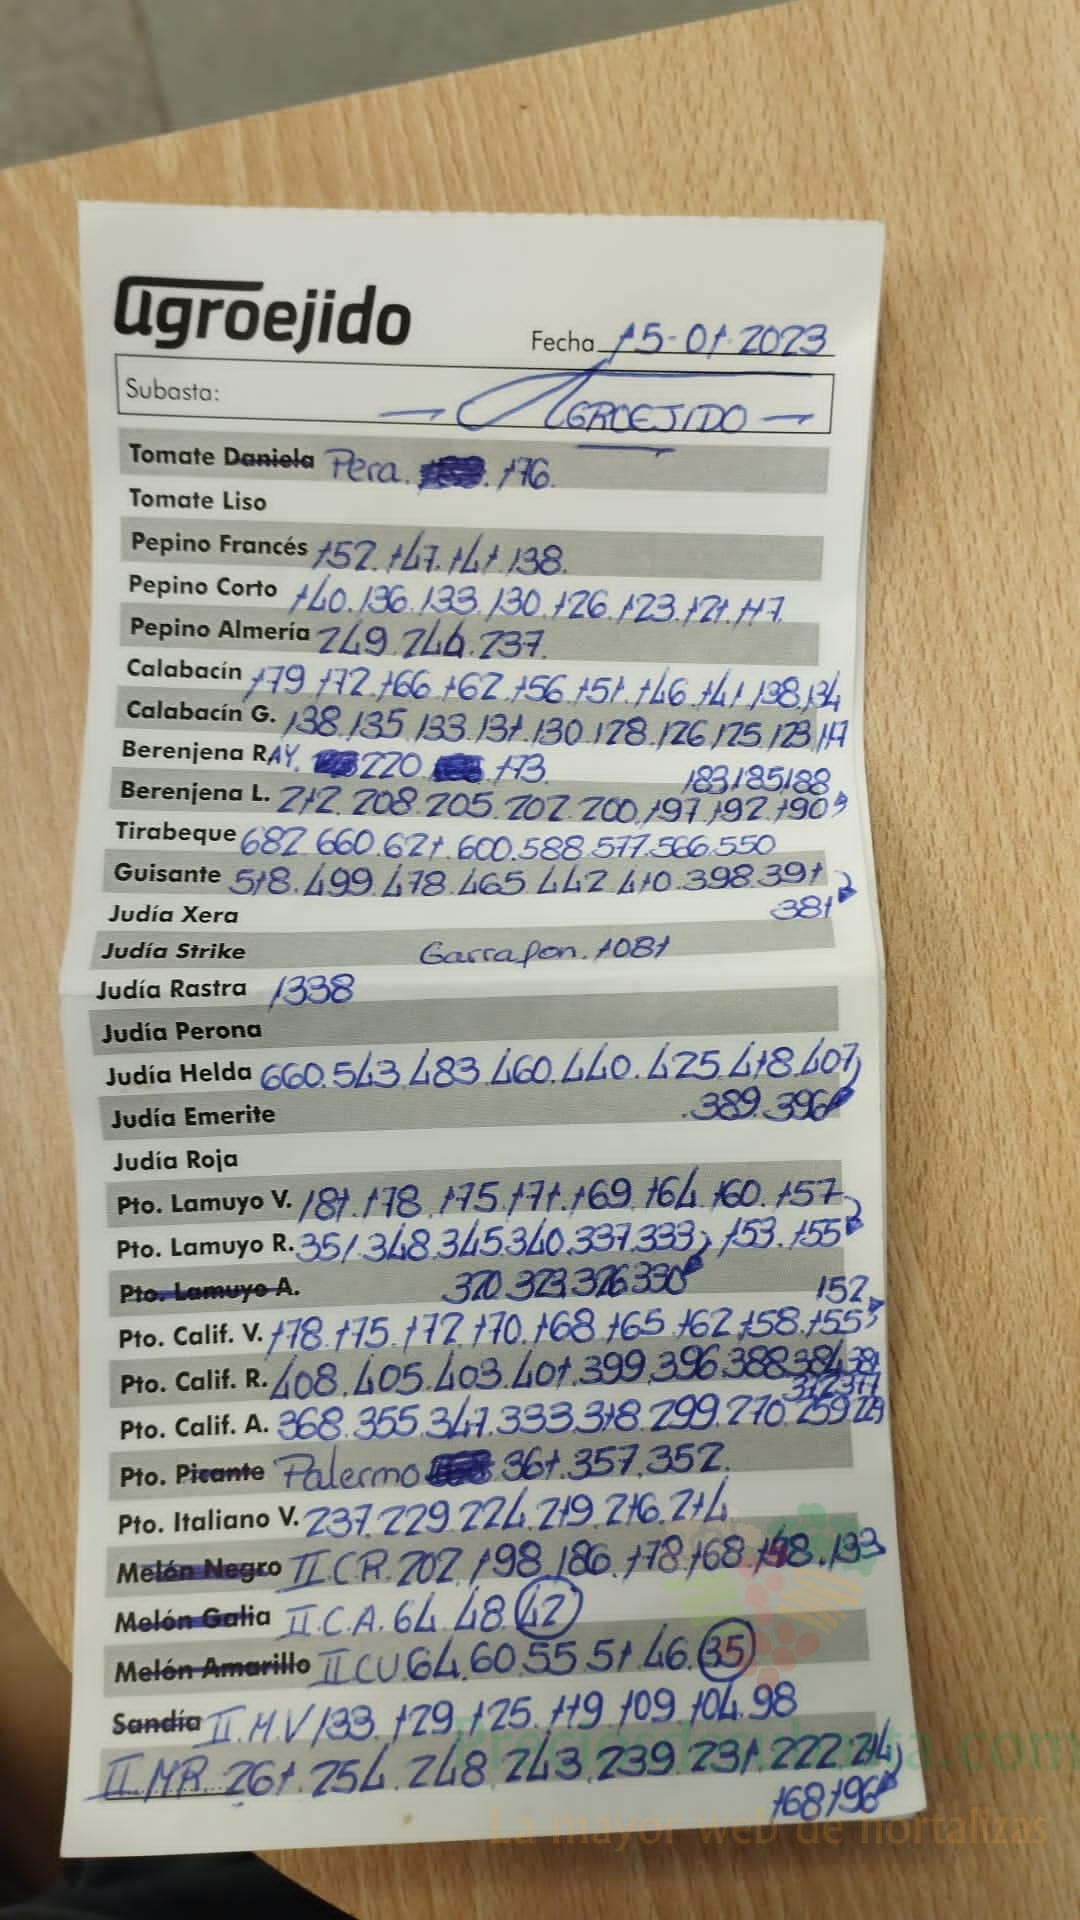 agroejido
Fecha 15-01-2023
Subasta: AGROEJIDO
Tomate Daniela Pera. 176.
Tomate Liso
Pepino Francés 152.147.141.138.
Pepino Corto 140.136.133.130.126.123.121.117.
Pepino Almería 249.244.237.
Calabacín 179 172.166 162.156 151.146 141.138.134
Calabacín G. 138.135.133.131.130.128.126.125.123.117
Berenjena RAY. 220. 173.
183.185.188
Berenjena L. 212.208.205.202.200.197.192.190
Tirabeque 682.660.621.600.588.577.566.550
Guisante 518.499.478.465.442.410.398.391
Judía Xera 381
Judía Strike Garrafon. 1081
Judía Rastra 1338
Judía Perona
Judía Helda 660.543.483.460.440.425.418.407
Judía Emerite .389.396
Judía Roja
Pto. Lamuyo V. 181.178.175.171.169.164.160.157
Pto. Lamuyo R. 351.348.345.340.337.333 153.155
Pto. Lamuyo A. 320.323.326.330 152
Pto. Calif. V. 178.175.172.170.168.165.162.158.155
Pto. Calif. R. 408.405.403.401.399.396.388.384.381
Pto. Calif. A. 368.355.347.333.318.299.270.259
Pto. Picante Palermo 361.357.352.
Pto. Italiano V. 237.229.224.219.216.214
Melón Negro II CR. 202.198.186.178.168.148.133
Melón Galia II.C.A. 64.48.42
Melón Amarillo II CU 64.60.55.51.46.35
Sandía II.M.V 133.129.125.119.109.104.98
II MR. 261.254.248.243.239.231.222.214
168.196
La mayor web de hortalizas